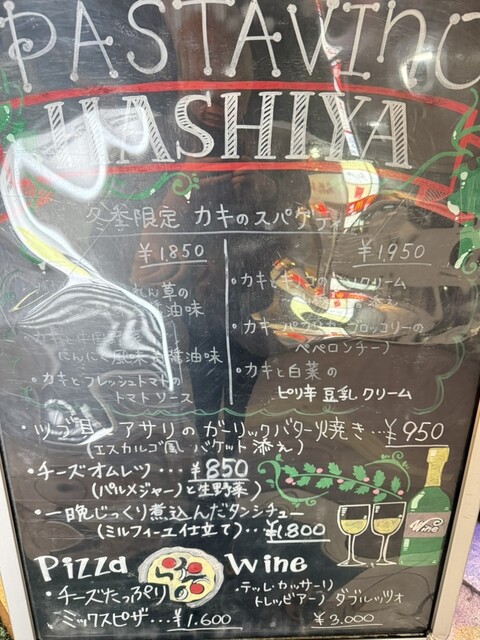 PASTAVINO
HASHIYA
冬季限定 カキのスパゲティ
¥1,850
れん草の
醤油味
にんにく風味 醤油味
・カキとフレッシュトマトの
トマトソース
¥1,950
・カキと クリーム
添え
・カキ ブロッコリーの
ペペロンチーノ
・カキと白菜の
ピリ辛 豆乳 クリーム
・ツブ貝とアサリの ガーリックバター焼き…¥950
(エスカルゴ風 バケット添え)
・チーズオムレツ…¥850
(パルメジャーノと生野菜)
・一晩じっくり煮込んだタンシチュー
(ミルフィーユ仕立て)…¥1.800
Pizza
・チーズたっぷり
ミックスピザ…¥1.600
Wine
・テッレ・カッサーリ
トレッビアーノ ダブルッツォ
¥3.000
Wine